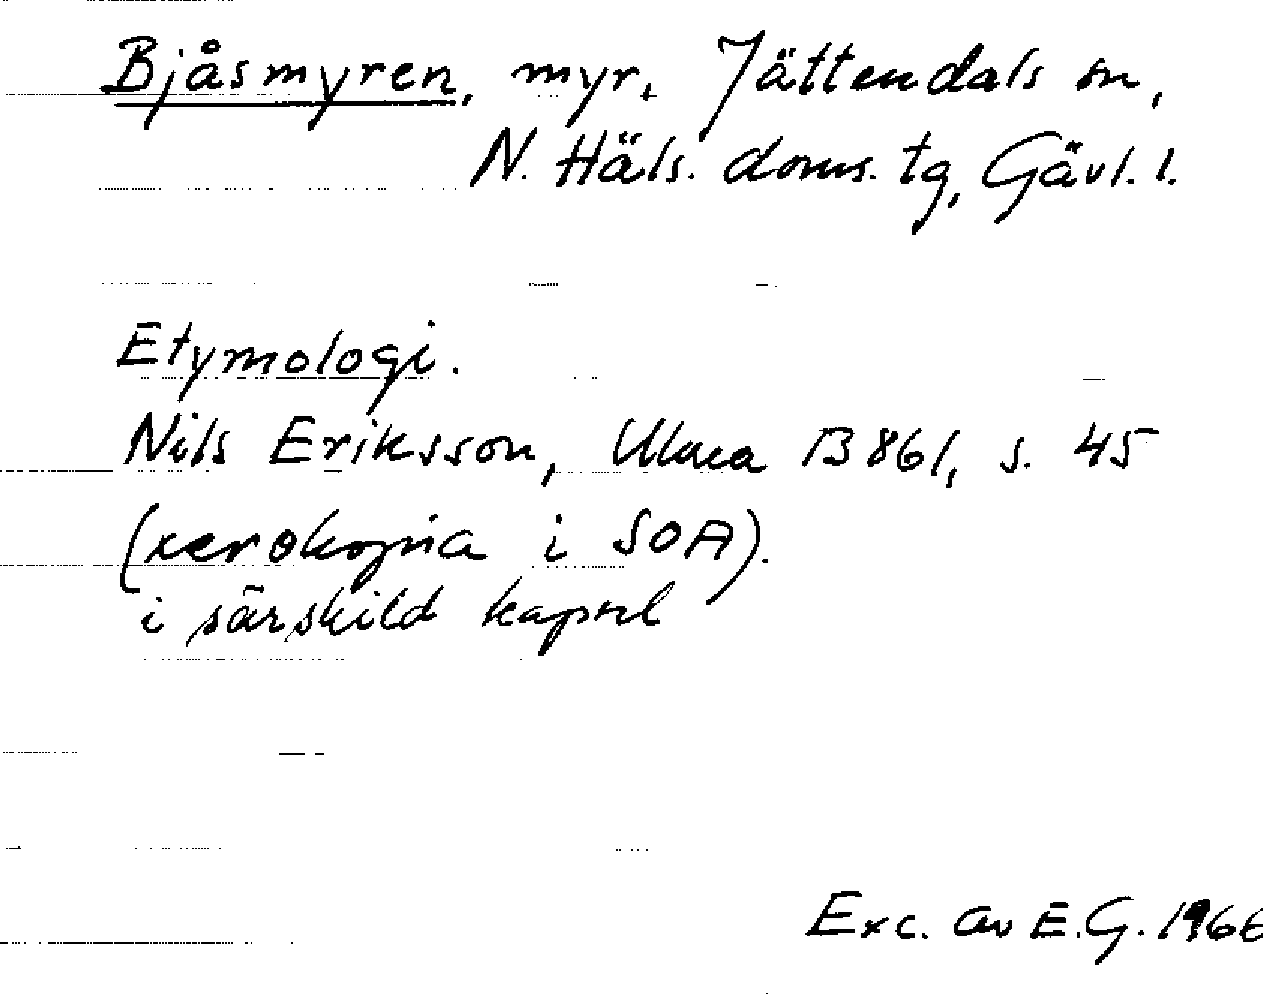 Bjåsmyren, myr, Jättendals sn,
N. Häls. doms. tg, Gävl. l.
Etymologi.
Nils Eriksson, Ulma B 861, s. 45
(xerokopia i SOA).
i särskild kapsel
Exc. av E.G. 1966